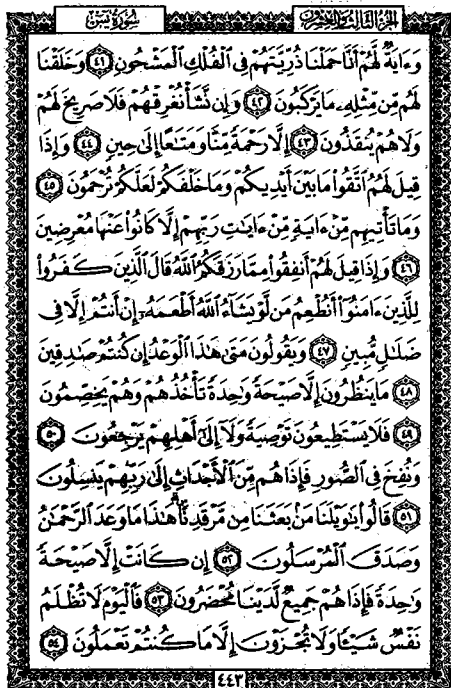 الجزء الثالث والعشرون سورة يس
وَءَايَةٌ لَّهُمْ أَنَّا حَمَلْنَا ذُرِّيَّتَهُمْ فِى ٱلْفُلْكِ ٱلْمَشْحُونِ ٤١ وَخَلَقْنَا
لَهُم مِّن مِّثْلِهِۦ مَا يَرْكَبُونَ ٤٢ وَإِن نَّشَأْ نُغْرِقْهُمْ فَلَا صَرِيخَ لَهُمْ
وَلَا هُمْ يُنقَذُونَ ٤٣ إِلَّا رَحْمَةً مِّنَّا وَمَتَـٰعًا إِلَىٰ حِينٍ ٤٤ وَإِذَا
قِيلَ لَهُمُ ٱتَّقُوا۟ مَا بَيْنَ أَيْدِيكُمْ وَمَا خَلْفَكُمْ لَعَلَّكُمْ تُرْحَمُونَ ٤٥
وَمَا تَأْتِيهِم مِّنْ ءَايَةٍ مِّنْ ءَايَـٰتِ رَبِّهِمْ إِلَّا كَانُوا۟ عَنْهَا مُعْرِضِينَ
٤٦ وَإِذَا قِيلَ لَهُمْ أَنفِقُوا۟ مِمَّا رَزَقَكُمُ ٱللَّهُ قَالَ ٱلَّذِينَ كَفَرُوا۟
لِلَّذِينَ ءَامَنُوٓا۟ أَنُطْعِمُ مَن لَّوْ يَشَآءُ ٱللَّهُ أَطْعَمَهُۥٓ إِنْ أَنتُمْ إِلَّا فِى
ضَلَـٰلٍ مُّبِينٍ ٤٧ وَيَقُولُونَ مَتَىٰ هَـٰذَا ٱلْوَعْدُ إِن كُنتُمْ صَـٰدِقِينَ
٤٨ مَا يَنظُرُونَ إِلَّا صَيْحَةً وَٰحِدَةً تَأْخُذُهُمْ وَهُمْ يَخِصِّمُونَ
٤٩ فَلَا يَسْتَطِيعُونَ تَوْصِيَةً وَلَآ إِلَىٰٓ أَهْلِهِمْ يَرْجِعُونَ ٥٠
وَنُفِخَ فِى ٱلصُّورِ فَإِذَا هُم مِّنَ ٱلْأَجْدَاثِ إِلَىٰ رَبِّهِمْ يَنسِلُونَ
٥١ قَالُوا۟ يَـٰوَيْلَنَا مَنۢ بَعَثَنَا مِن مَّرْقَدِنَا ۜ ۗ هَـٰذَا مَا وَعَدَ ٱلرَّحْمَـٰنُ
وَصَدَقَ ٱلْمُرْسَلُونَ ٥٢ إِن كَانَتْ إِلَّا صَيْحَةً
وَٰحِدَةً فَإِذَا هُمْ جَمِيعٌ لَّدَيْنَا مُحْضَرُونَ ٥٣ فَٱلْيَوْمَ لَا تُظْلَمُ
نَفْسٌ شَيْـًٔا وَلَا تُجْزَوْنَ إِلَّا مَا كُنتُمْ تَعْمَلُونَ ٥٤
٤٤٣